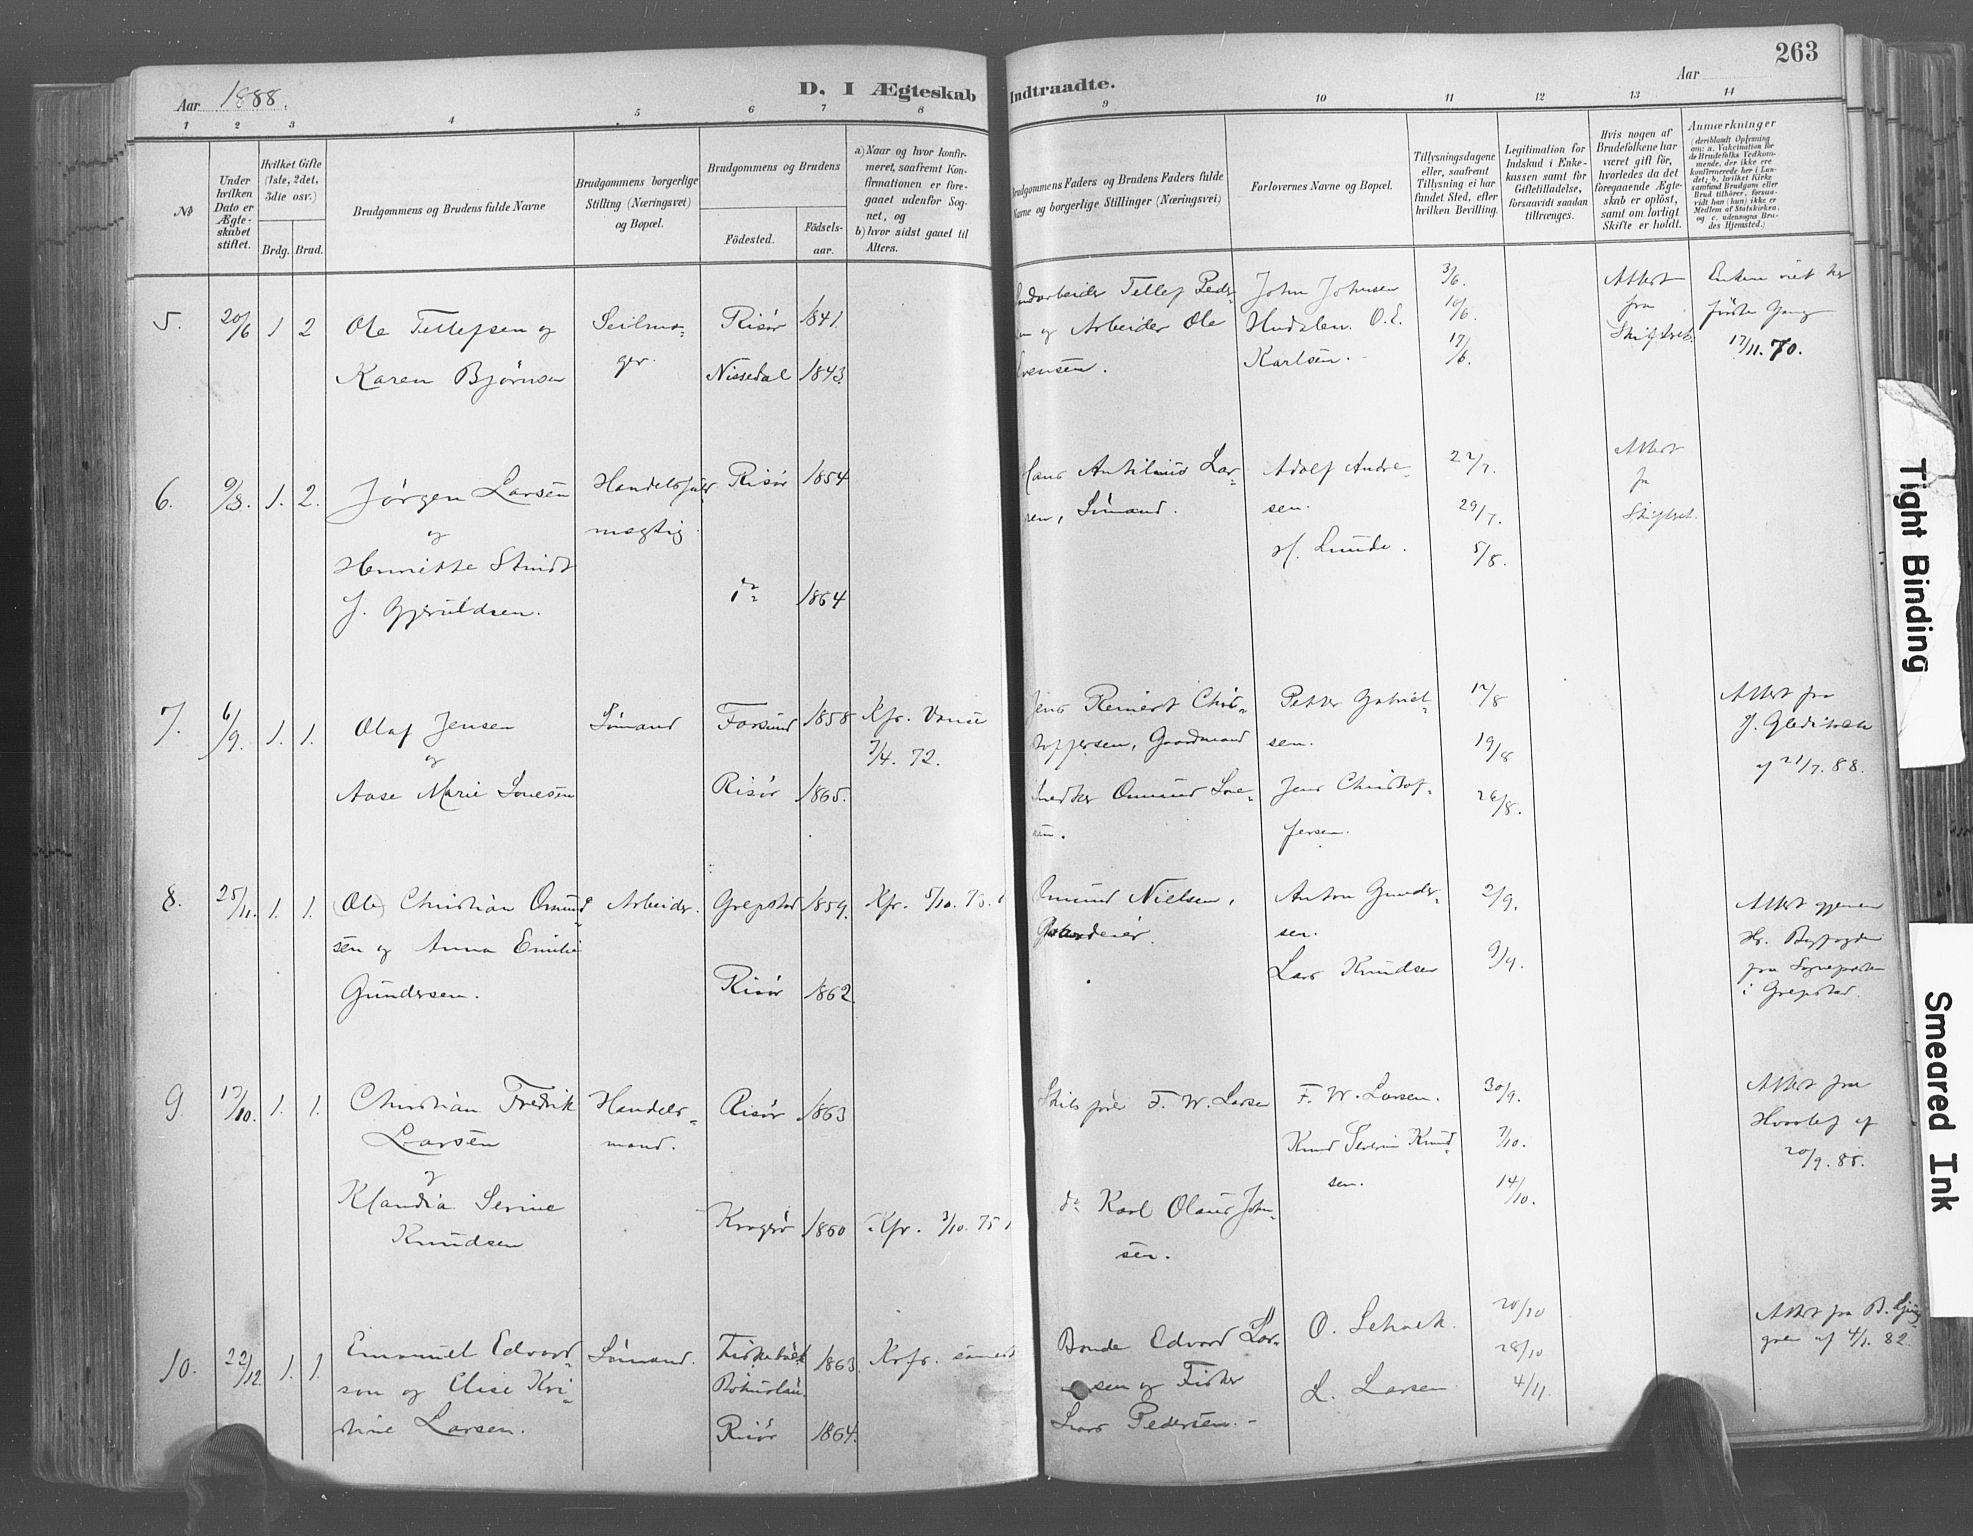 263
Aar 1888.
D. I Ægteskab Indtraadte.
Aar
1 2 3 4 5 6 7 8 9 10 11 12 13 14
No
Under hvilken Dato er Ægteskabet stiftet.
Hvilket Gifte (1ste, 2det, 3die osv.)
Brdg. Brud.
Brudgommens og Brudens fulde Navne
Brudgommens borgerlige Stilling (Næringsvei) og Bopæl.
Brudgommens og Brudens
Födested.
Födsels-aar.
a) Naar og hvor konfirmeret, saafremt Konfirmationen er foregaaet udenfor Sognet, og
b) hvor sidst gaaet til Alters.
Brudgommens Faders og Brudens Faders fulde Navne og borgerlige Stillinger (Næringsvei)
Forlovernes Navne og Bopæl.
Tillysningsdagene eller, saafremt Tillysning ei har fundet Sted, efter hvilken Bevilling.
Legitimation for Indskud i Enkekassen samt for Giftetilladelse, forsaavidt saadan tiltrænges.
Hvis nogen af Brudefolkene har været gift før, hvorledes da det foregaaende Ægteskab er oplöst, samt om lovligt Skifte er holdt.
Anmærkninger
5. 20/6 1 2 Ole Tellefsen og
Karen Bjørnsen
Seilma-
ger.
Risør 1841.
Nissedal 1843
Tellef Peder-
og Arbeider Ole
John Johnsen
O. E.
Karlsen.
3/6.
10/6.
17/6.
Attest
fra
Skifteret.
Enken viet her
første Gang
17/11. 70.
6. 9/8. 1. 2. Jørgen Larsen
og
Henriette
J. Gjeruldsen.
Handelsful-
mægtig
Risør 1854
do 1864
Hans Lar-
sen, Sømand.
Adolf Andre-
sen.
H. Lunde.
22/7.
29/7.
5/8.
Attest
fr
Skifteret.
7. 6/9. 1. 1. Olaf Jensen
og
Aase Marie
Sømand
Farsund 1858
Risør 1865.
Kfr. Vanse
7/4. 72.
Jens Reinert Chris-
toffersen, Gaardmand
Petter Gabriel-
sen.
Jens Christof-
fersen.
12/8
19/8
26/8.
Attest fra
J. Gleditsch
af 21/7. 88.
8. 25/11. 1. 1. Ole Christian Omund-
sen og Anna Emilie
Gundersen.
Arbeider.
Grepstad 1859.
Risør 1862.
Kfr. 5/10. 73.
Omund Nielsen,
Anton Gunder-
sen.
Lars Knudsen
2/9.
9/9.
Attest gjennem
Hr. Byfogden
fra Sognepresten
i Grepstad.
9. 17/10. 1. 1. Christian Fredrik
Larsen
og
Klandia Serine
Knudsen
Handels-
mand.
Risør 1863
Kragerø 1860
Kfr. 3/10. 75
Skibsfører F. W. Larsen
do Karl Olaus John-
sen.
F. W. Larsen.
Knud Severin Knud-
sen.
30/9.
7/10.
14/10.
Attest fra
af
20/9. 88.
10. 22/12. 1. 1. Emanuel Edvard-
son og Elise Kri-
stine Larsen.
Sømand.
1863
Risør 1864.
Krfr. samest
Bonde Edvard Lar-
sen og Fisker
Lars Pedersen.
O. Schack.
L. Larsen
20/10
28/10
4/11
Attest fra B. Ljung-
gren af 4/1. 82.
Tight Binding
Smeared Ink